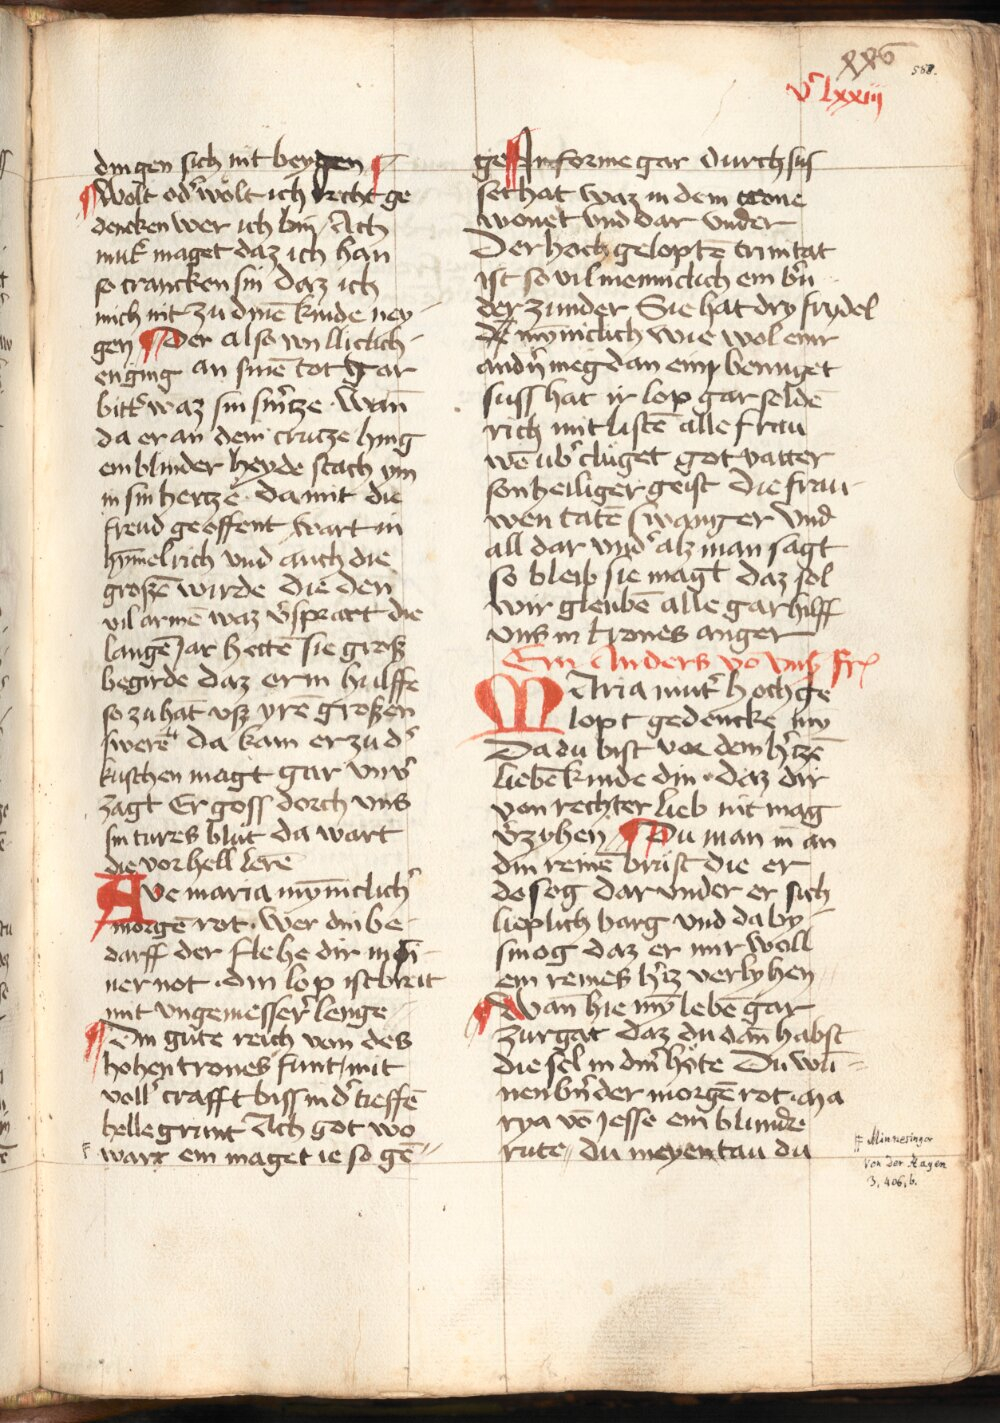 xxv
558.
vͨ lxxiij
dingen sich nit beygen
Wolt odˀ wolt ich recht ge
dencken wer ich bin Ach
mutˀ maget daz ich han
so crancken sin daz ich
mich nit zu dinē kinde ney-
gen Der also williclich-
en ging an sinē tot gar
bittˀ waz sin smˀtze · Wan
da er an dem crutze hing
ein blinder heyde stach ym
in sin hertze · da mit die
freud geoffent wart in
hym̄elrich vnd auch die
großē wirde die den
vil armē waz vˀspart die
langē Jar hettē sie groß
begirde daz er in hulffe
so zu hāt vß yrē großen
swerē da kam er zu dˀ
kuschen magt gar vnvˀ
zagt Er goss dorch vns
sin tures blut da wart
die vorhell lere
AVe maria mȳniclichˀ
morgē rot · Wer din be-
darff der flehe dir in ei-
ner not · din lop ist breit
mit vngemesserˀ lenge
Din gute reich von des
hohen trones funt / mit
vollˀ crafft biss in dˀ tieffē
helle grunt Ach got wo
wart ein maget ie so gē-
ge In forme gar durch sus
set hat waz in dem trone
wonet vnd dar vnder
Der hoch geloptē trinitat
ist so vil menniclich ein bˀn
der zunder Sie hat dry frydel
mȳniclich wie wol einr
andˀn megde an eim benuget
suss hat ir lop gar selde
rich mit listē alle frau
wē ubˀ cluget got vatter
son heiliger geist die frau-
wen tatē swanger vnd
all dar vndˀ alz man sagt
so bleip sie magt daz sol
wir gleubē alle gar hilff
vns in trones anger
Ein Anders vō vnsˀ frˀ
MAria mutˀ hoch ge
lopt gedencke my
Da du bist vor dem hˀtzē
liebē kinde din · daz dir
von rechter lieb nit mag
vˀzyhen Du man in an
din reinē brust die er
do sog dar vnder er sich
lieplich barg vnd da by-
smog daz er mir woll
ein reines hˀtz verlyhen
Wan hie my lebē gar
zurgat daz du dan̄ habst
die sel in dinˀ hute Du wū-
nenbˀnder morgē rot · ma
rya vō Jesse ein blunde
rute // du meyentau du
Minnesinger
von der Hagen
3, 406, b.